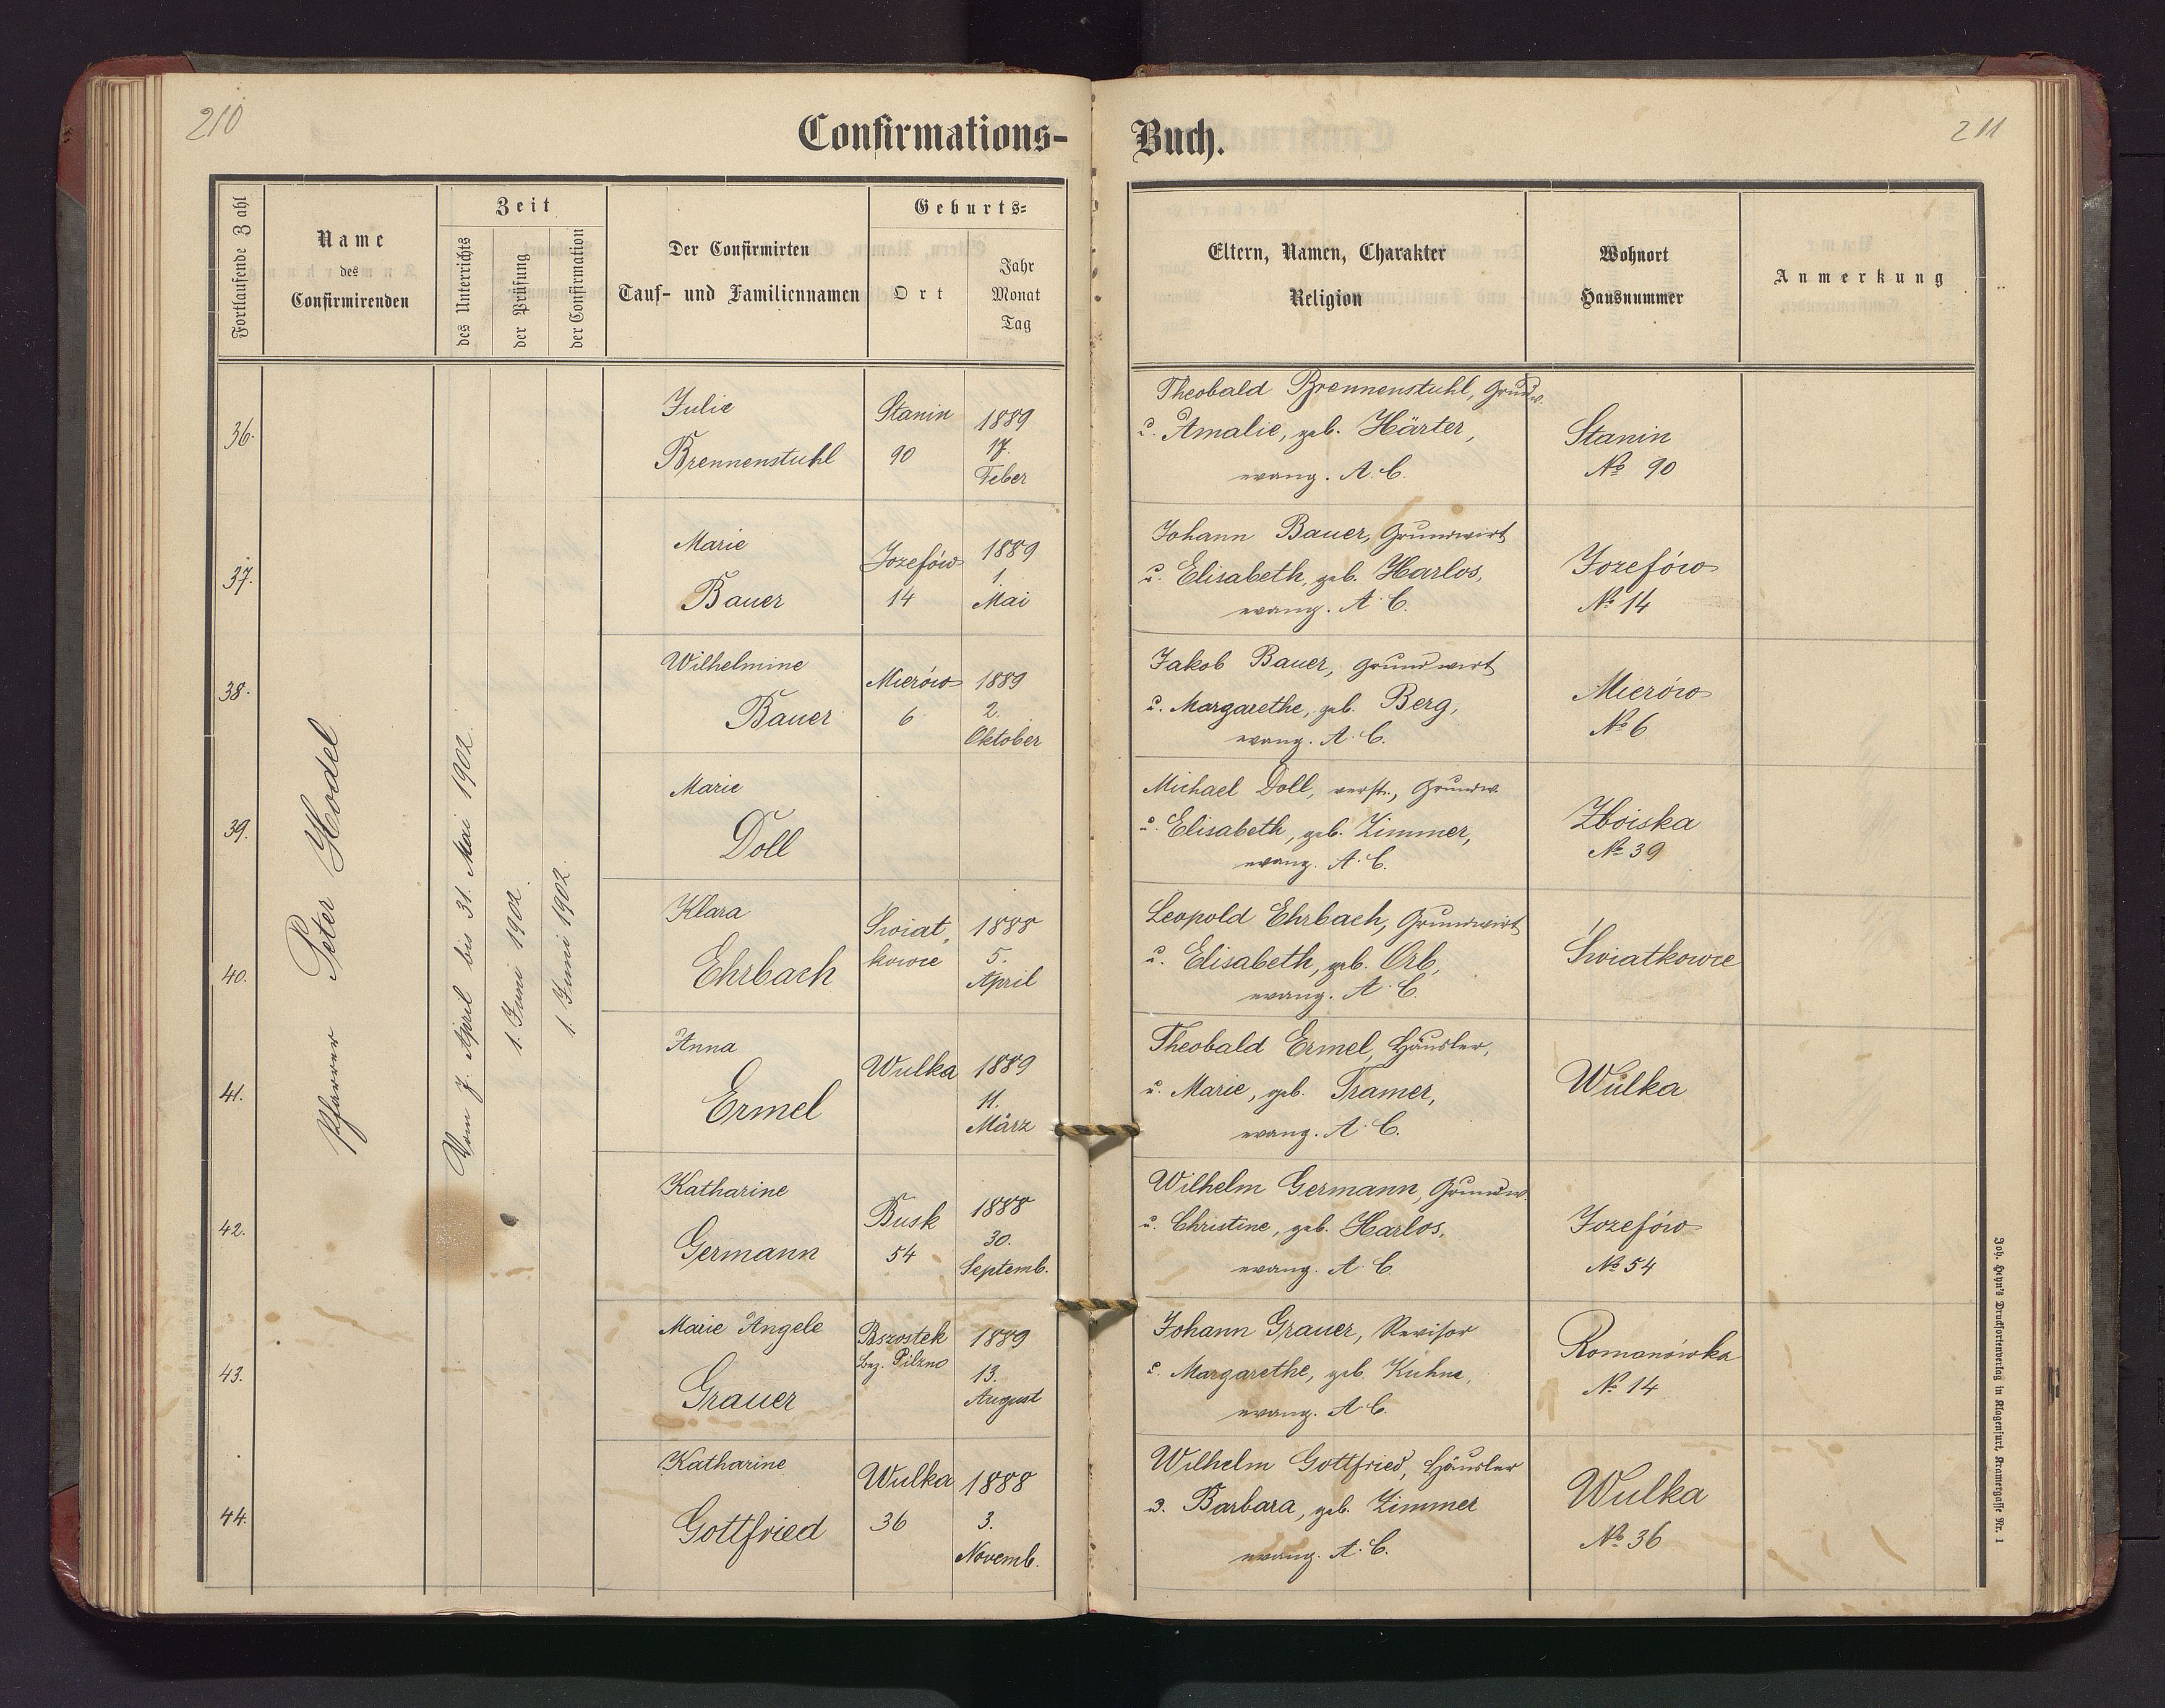 210
Confirmations-
Fortlaufende Zahl
Name
des
Confirmirenden
Zeit
des Unterrichts
der Prüfung
der Confirmation
Der Confirmirten
Tauf- und Familiennamen
Geburts-
Ort
Jahr
Monat
Tag
Pfarrer Peter Hodel
Vom 7. April bis 31. Mai 1902.
1. Juni 1902.
1. Juni 1902.
36.
Julie
Brennenstuhl
Stanin
90
1889
17.
Feber
37.
Marie
Bauer
Jozefów
14
1889
1.
Mai
38.
Wilhelmine
Bauer
Mierów
6
1889
2.
Oktober
39.
Marie
Doll
40.
Klara
Ehrbach
Światkowce
1888
5.
April
41.
Anna
Ermel
Wulka
1889
11.
März
42.
Katharine
Germann
Busk
54
1888
30.
Septemb.
43.
Marie Angele
Grauer
Bez. Pilzno
1889
13.
August
44.
Katharine
Gottfried
Wulka
36
1888
3.
Novemb.
211
Buch.
Eltern, Namen, Charakter
Religion
Wohnort
Hausnummer
Anmerkung
Theobald Brennenstuhl, Grundw.
u. Amalie, geb. Härter,
evang. A. C.
Stanin
No 90
Johann Bauer, Grundwirt
u. Elisabeth, geb. Harlos,
evang. A. C.
Jozefów
No 14
Jakob Bauer, Grundwirt
u. Margarethe, geb. Berg,
evang. A. C.
Mierów
No 6
Michael Doll, verst., Grundw.
u. Elisabeth, geb. Zimmer,
evang. A. C.
Zboiska
No 39
Leopold Ehrbach, Grundwirt
u. Elisabeth, geb. Orb,
evang. A. C.
Światkowce
Theobald Ermel, Häusler,
u. Marie, geb. Tramer,
evang. A. C.
Wulka
Wilhelm Germann, Grundw.
u. Christine, geb. Harlos,
evang. A. C.
Jozefów
No 54
Johann Grauer, Revisor
u. Margarethe, geb. Kuhne,
evang. A. C.
Romanówka
No 14
Wilhelm Gottfried, Häusler
u. Barbara, geb. Zimmer
evang. A. C.
Wulka
No 36
Joh. Heyn's Drucksortenverlag in Klagenfurt, Kramergasse Nr. 1